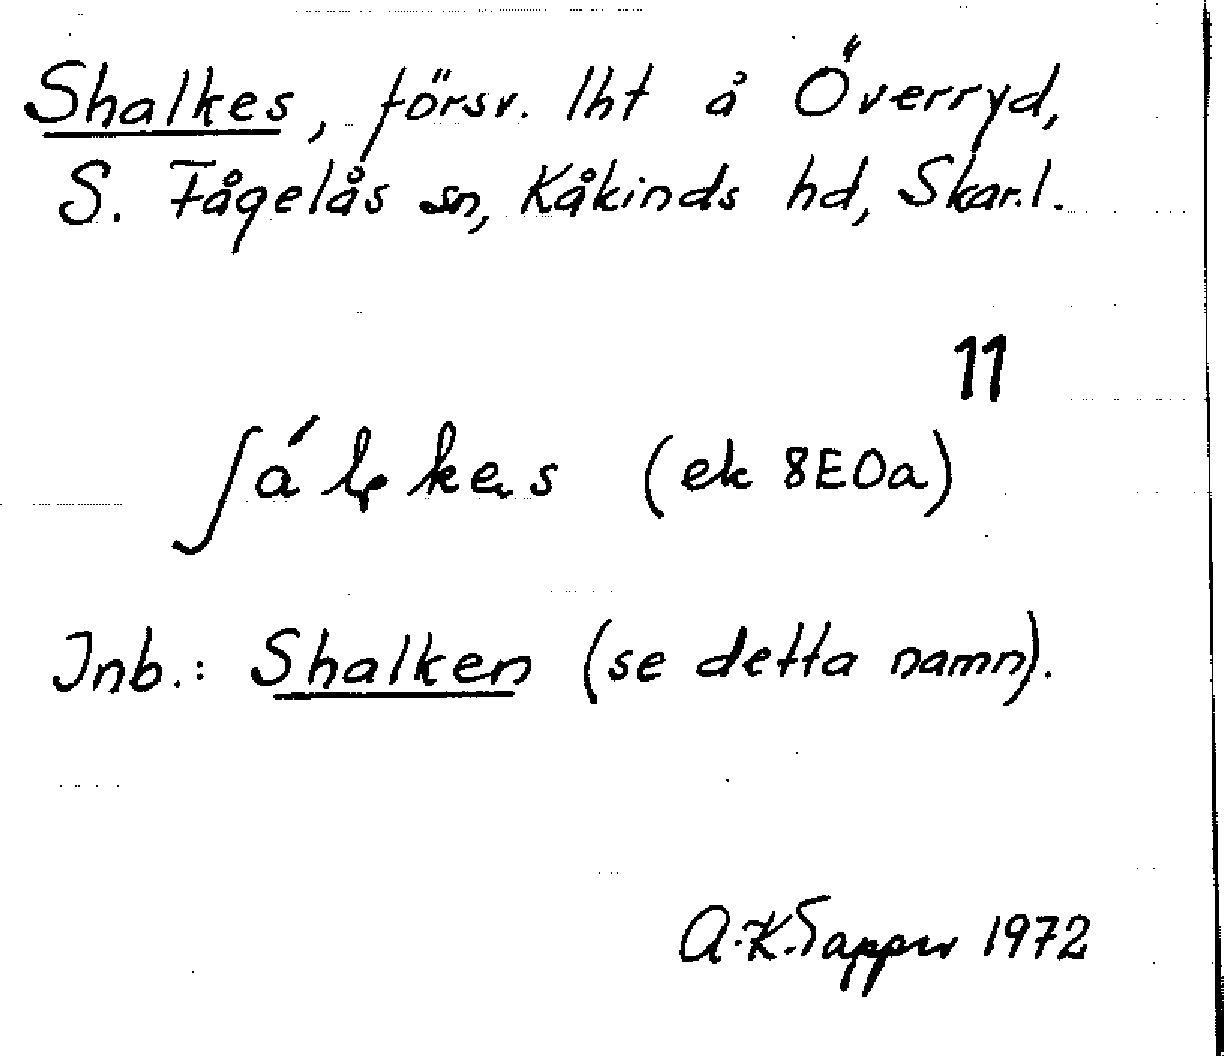 Shalkes, försv. lht å Överryd,
S. Fågelås sn, Kåkinds hd, Skar.l.
11
(ek 8E0a)
Inb.: Shalken (se detta namn).
A.K. Tapper 1972